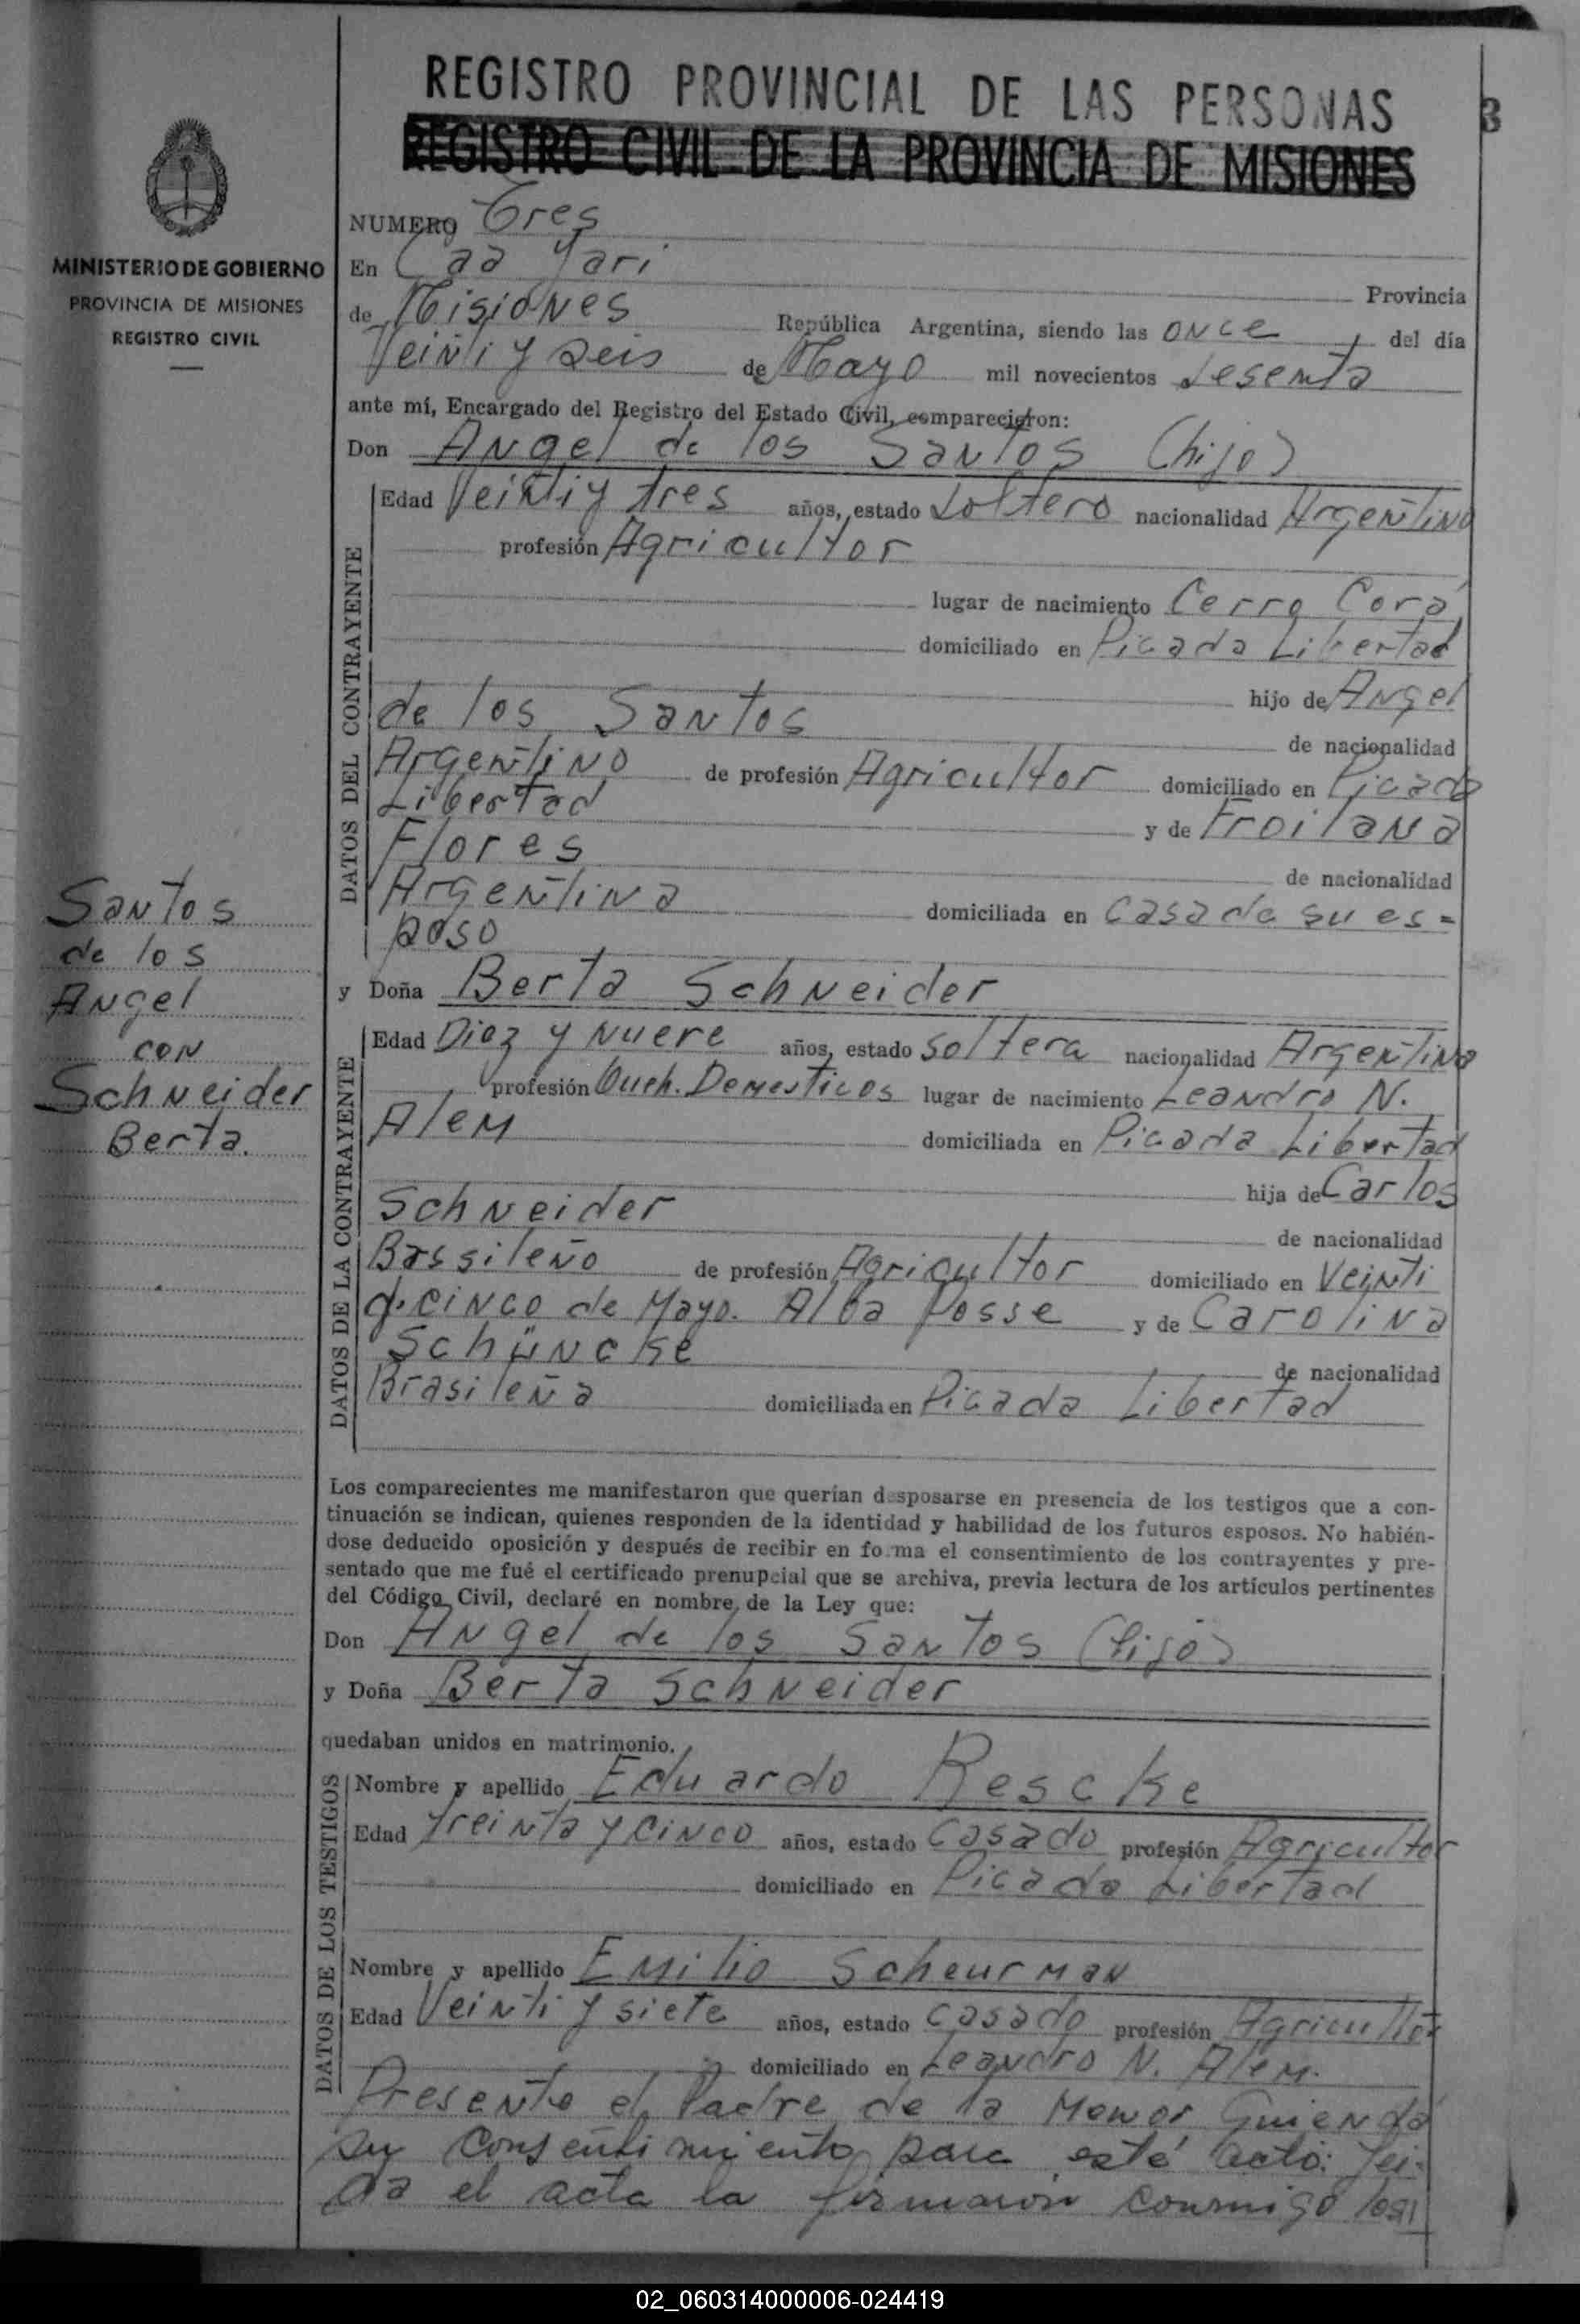 REGISTRO PROVINCIAL DE LAS PERSONAS
3
REGISTRO CIVIL DE LA PROVINCIA DE MISIONES
MINISTERIO DE GOBIERNO
PROVINCIA DE MISIONES
REGISTRO CIVIL
NUMERO Tres
En Caa Yari Provincia
de Misiones República Argentina, siendo las once del día
Veinti y seis de Mayo mil novecientos sesenta
ante mí, Encargado del Registro del Estado Civil, comparecieron:
Don Angel de los Santos (hijo)
DATOS DEL CONTRAYENTE
Edad Veinti y tres años, estado soltero nacionalidad Argentino
profesión Agricultor
lugar de nacimiento Cerro Corá
domiciliado en Picada Libertad
hijo de Angel
de los Santos
de nacionalidad
Argentino de profesión Agricultor domiciliado en Picada
Libertad
y de Froilana
Flores
de nacionalidad
Argentina domiciliada en casa de su es=
poso
Santos
de los
Angel
con
Schneider
Berta.
y Doña Berta Schneider
DATOS DE LA CONTRAYENTE
Edad Diez y nueve años, estado soltera nacionalidad Argentina
profesión Queh. Domesticos lugar de nacimiento Leandro N.
Alem domiciliada en Picada Libertad
hija de Carlos
Schneider
de nacionalidad
Brasileño de profesión Agricultor domiciliado en Veinti
cinco de Mayo. Alba Posse y de Carolina
Schüncke
de nacionalidad
Brasileña domiciliada en Picada Libertad
Los comparecientes me manifestaron que querían desposarse en presencia de los testigos que a con-
tinuación se indican, quienes responden de la identidad y habilidad de los futuros esposos. No habién-
dose deducido oposición y después de recibir en forma el consentimiento de los contrayentes y pre-
sentado que me fué el certificado prenupcial que se archiva, previa lectura de los artículos pertinentes
del Código Civil, declaré en nombre de la Ley que:
Don Angel de los Santos (hijo)
y Doña Berta Schneider
quedaban unidos en matrimonio.
DATOS DE LOS TESTIGOS
Nombre y apellido Eduardo Rescke
Edad treinta y cinco años, estado casado profesión Agricultor
domiciliado en Picada Libertad
Nombre y apellido Emilio Scheurman
Edad Veinti y siete años, estado casado profesión Agricultor
domiciliado en Leandro N. Alem.
Presente el Padre de la Menor quien da
su consentimiento para esté acto: Lei-
da el acta la firmaron conmigo los
02_060314000006-024419